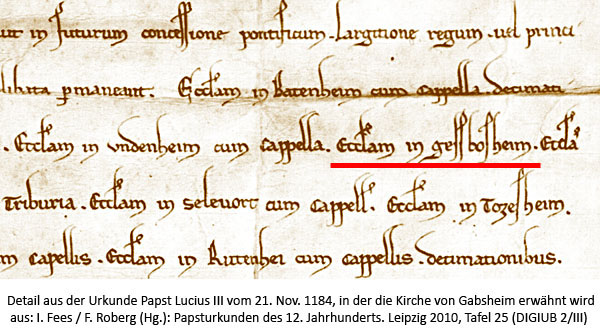 in futurum concessione pontificum. Largitione regum. vel princi
libata permaneant. Ecclam in Batenheim cum cappella. decimati
. Ecclam in undenheim cum cappella. Ecclam in gessbosheim. Eccla
Triburia. Ecclam in selevort cum cappell. Ecclam in Tozesheim.
m capellis. Ecclam in Ruttenhei cum cappellis. decimationibus.
Detail aus der Urkunde Papst Lucius III vom 21. Nov. 1184, in der die Kirche von Gabsheim erwähnt wird
aus: I. Fees / F. Roberg (Hg.): Papsturkunden des 12. Jahrhunderts. Leipzig 2010, Tafel 25 (DIGIUB 2/III)